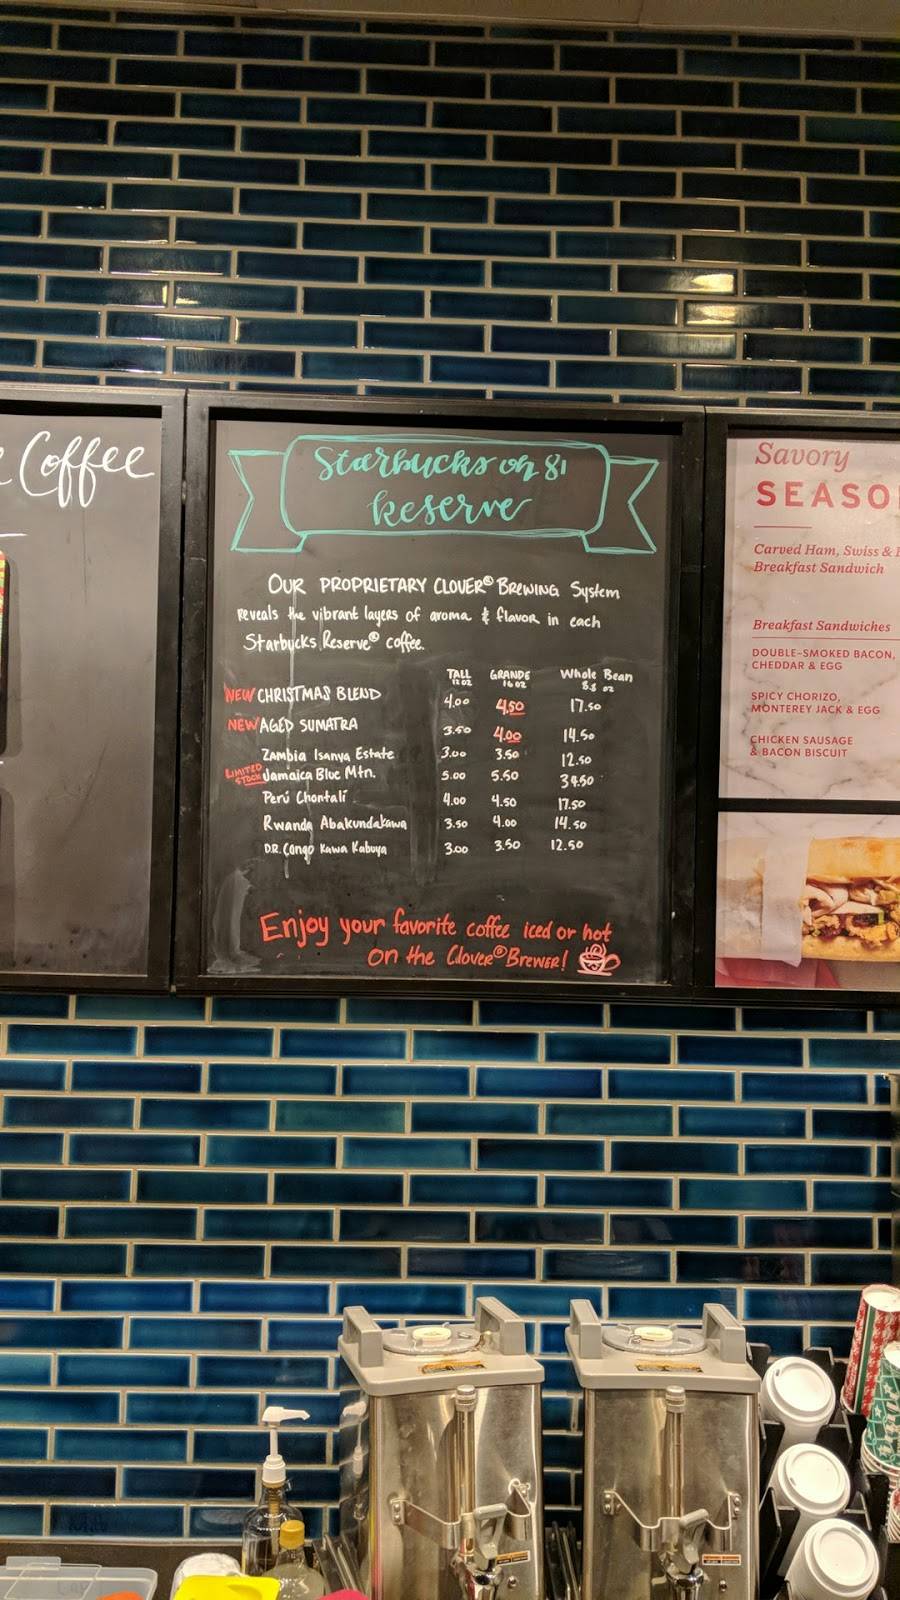 Coffee
Starbucks on 81
Reserve
OUR PROPRIETARY CLOVER® BREWING System
reveals the vibrant layers of aroma & flavor in each
Starbucks Reserve® coffee.
TALL 12 oz GRANDE 16 oz Whole Bean 8.8 oz
NEW CHRISTMAS BLEND 4.00 4.50 17.50
NEW AGED SUMATRA 3.50 4.00 14.50
Zambia Isanya Estate 3.00 3.50 12.50
LIMITED STOCK Jamaica Blue Mtn. 5.00 5.50 34.50
Perú Chontalí 4.00 4.50 17.50
Rwanda Abakundakawa 3.50 4.00 14.50
D.R. Congo Kawa Kabuya 3.00 3.50 12.50
Enjoy your favorite coffee iced or hot
on the Clover® Brewer!
Savory
SEASO
Carved Ham, Swiss &
Breakfast Sandwich
Breakfast Sandwiches
DOUBLE-SMOKED BACON,
CHEDDAR & EGG
SPICY CHORIZO,
MONTEREY JACK & EGG
CHICKEN SAUSAGE
& BACON BISCUIT